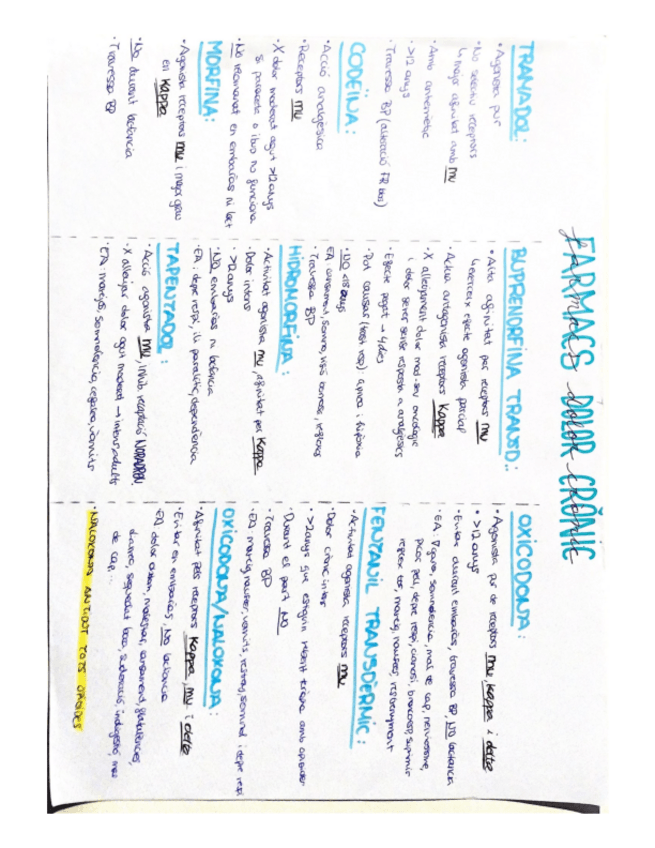 FÀRMACS DOLOR CRÒNIC
TRAMADOL:
· Agonista pur
· No selectiu receptors
↳ major afinitat amb mu
· Amb antiemètic
· >12 anys
· Travessa BP (alteració FR bas)
CODEÏNA:
· Acció analgèsica
· Receptors mu
· X dolor moderat agut >12 anys
si paraceta o ibu no funciona
· No recomanat en embaràs ni lact
MORFINA:
· Agonista receptors mu i major grau
en Kappa
· No durant lactància
· Travessa BP
BUPRENORFINA TRANSD.:
· Alta afinitat per receptors mu
↳ exerceix efecte agonista parcial
· Actua antagonista receptors Kappa
· X alleujament dolor mod-seu oncològic
i dolor sever sense resposta a analgèsics
· Efecte pegat → 4 dies
· Pot causar (test resp): apnea i hipòxia
· NO <18 anys
EA: somnolent, somni,
· Travessa BP
HIDROMORFINA:
· Activitat agonista mu, afinitat per Kappa
· Dolor intens
· >12 anys
· NO embaràs ni lactància
· EA: depre respi, ili paralític, dependència
TAPENTADOL:
· Acció agonista mu, inhib recaptació NORADREN.
· X alleujar dolor agut moderat → intens, adults
· EA: marejos, somnolència, cefalea, vòmits
OXICODONA:
· Agonista pur de receptors mu, kappa i delta
· >12 anys
· Evitar durant embaràs, travessa BP, NO lactància
· EA: somnolència, mal de cap, nerviosisme,
picor pell, depre respi, cianosi, broncoesp, suprimir
reflex tos, mareig, nausees, restrenyiment
FENTANIL TRANSDÈRMIC:
· Activitat agonista receptors mu
· Dolor crònic intens
· >2 anys que estiguin rebent teràpia amb opioides
· Durant el part NO
· Travessa BP
· EA: mareig, nausees, vomits, restreny, somnol i depre respi
OXICODONA/NALOXONA:
· Afinitat pels receptors Kappa, mu i delta
· Evitar en embaràs, NO lactància
· EA: dolor abdom, malestar, flatulències,
diarrea, sequedat boca, sudoració, indigestió, mal
de cap...
· NALOXONA ANTIDOT TOTS OPIOIDES